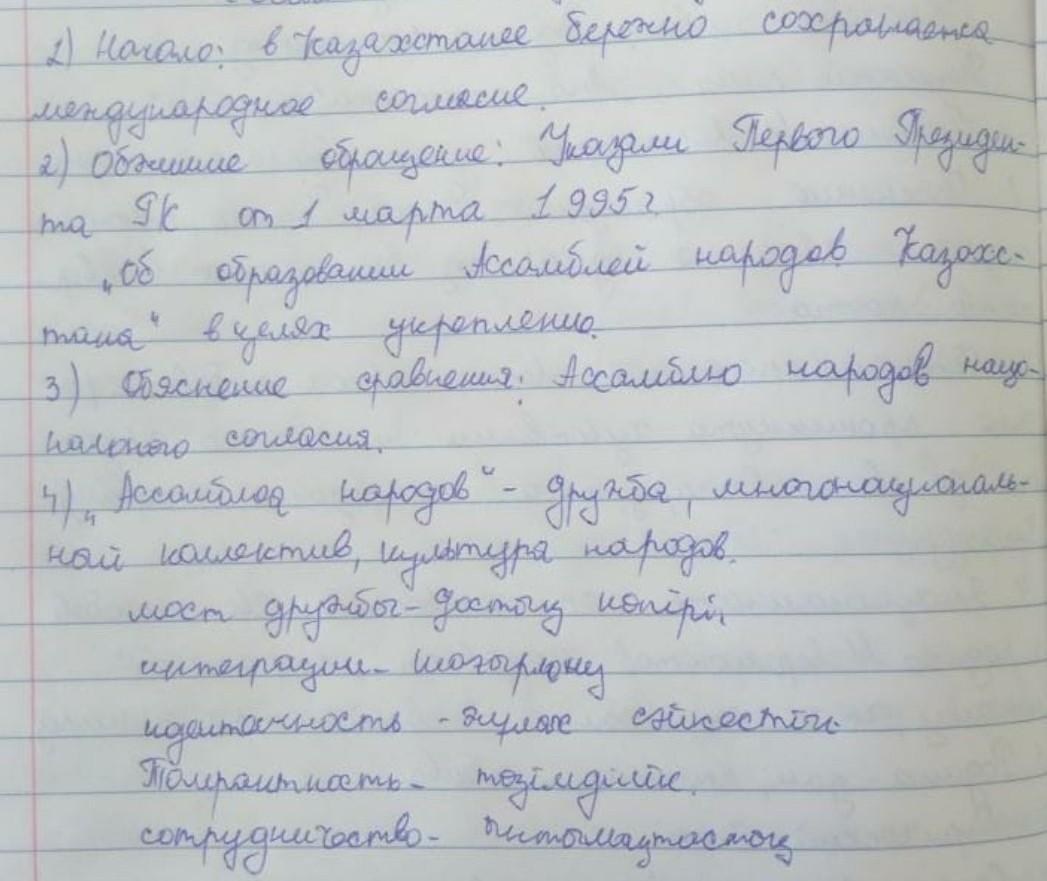 1) Начало: в Казахстанее бережно сохраняется
международное согласие.
2) Обжшие обращение: Указали Первого Президен-
та РК от 1 марта 1995г
„Об образовании Ассамблей народов Казахс-
тана“ в целях укреплению.
3) Обяснение сравнения: Ассамблю народов нацо-
нального согласия.
4) „Ассамблоя народов“ - дружба, многонациональ-
ной коллектив, культура народов.
мост дружбы - достық көпірі,
интеграции - шоғырлану
идентичность - сәйкестік
Толерантность - төзімділік.
сотрудничество -